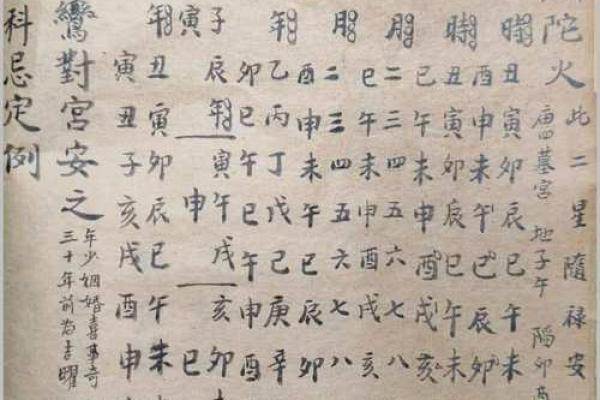 陀火
此二星隨祿安
廟四墓宮 地子午 陷卯
時 丑寅卯辰巳午未
酉申未午巳辰卯
時 丑寅卯辰巳午未
巳午未申酉戌亥
月 二三四五六七八
巳午未申酉戌亥
月 二三四五六七八
酉申未午巳辰卯
年 乙丙丁戊己庚辛
卯巳午巳午申酉
子辰年 寅午戌 亥卯
寅 申 巳
年 丑寅卯辰巳午未
寅丑子亥戌酉申
鸞對宮安之
年少姻婚喜事奇
三十年前為吉曜
科忌定例